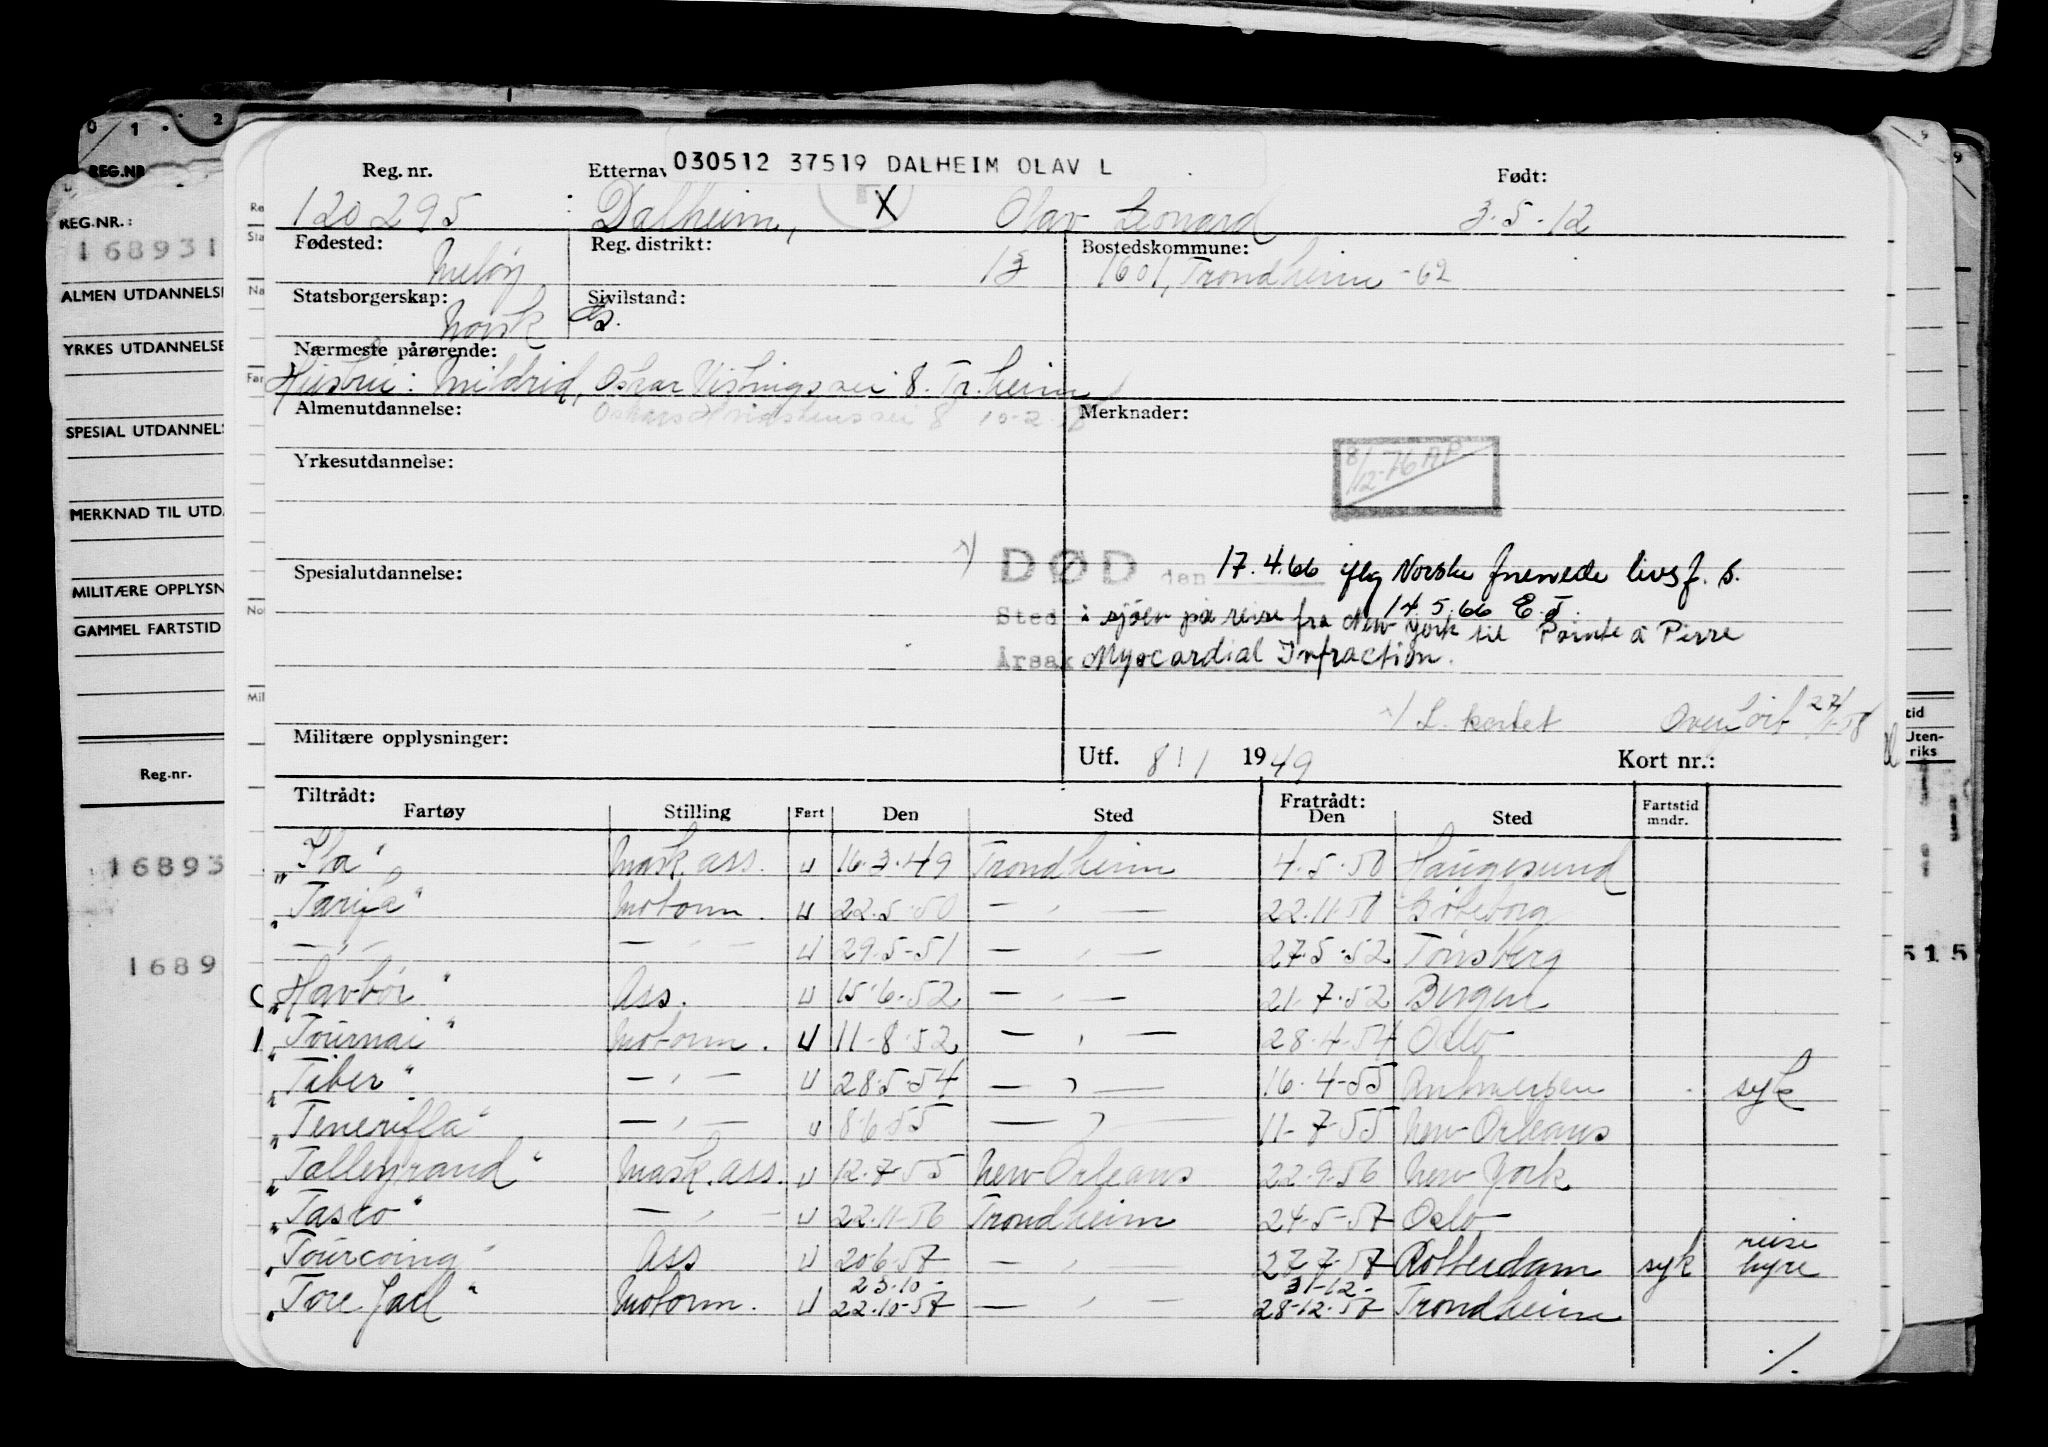 0 1 2
REG.NR
REG.NR.:
168931
ALMEN UTDANNELSE
YRKES UTDANNELSE
SPESIAL UTDANNELS
MERKNAD TIL UTDA
MILITÆRE OPPLYSN
GAMMEL FARTSTID
Reg.nr.
16893
1689
030512 37519 DALHEIM OLAV L
Reg. nr. Etternav Født:
120295 Dalheim, X Olav Leonard 3-5-12
Fødested: Meløy Reg. distrikt: 13 Bostedskommune: 1601, Trondheim -62
Statsborgerskap: Norsk Sivilstand: G.
Nærmeste pårørende:
Hustru: Mildrid, Oskar Wistingsvei 8. Tr.heim
Almenutdannelse: 8 10-2-58 Merknader:
Yrkesutdannelse: 8/12-76 AP
DØD den 17.4.66 iflg Norske forenede livsf. s.
Spesialutdannelse:
14.5.66 E.J.
Sted i sjöen på reise fra New York til Pointe à Pierre
Årsak Myocardial Infraction.
x) L. kortet Overført 27/1-58
Militære opplysninger: Utf. 8/1 1949 Kort nr.:
Tiltrådt: Fratrådt:
Fartøy Stilling Fart Den Sted Den Sted Fartstid mndr.
"Ila" Mask.ass. U 16-3-49 Trondheim 4-5-50 Haugesund
"Tarifa" Motorm. U 22-5-50 — , — 22-11-50 Gøteborg
— , — — , — U 29-5-51 — , — 27-5-52 Tønsberg
"Havbør" Ass. U 15-6-52 — , — 21-7-52 Bergen
"Tournai" Motorm. U 11-8-52 — , — 28-4-54 Oslo
"Tiber" — , — U 28-5-54 — , — 16-4-55 Antwerpen syk
"Teneriffa" — , — U 8-6-55 — , — 11-7-55 New Orleans
"Talleyrand" Mask.ass. U 12-7-55 New Orleans 22-9-56 New York
"Tasco" — , — U 22-11-56 Trondheim 24-5-57 Oslo
"Tourcoing" Ass U 20-6-57 — , — 27-7-57 Rotterdam syk reise hyre
23-10- 31-12-
"Tore Jarl" Motorm. U 22-10-57 — , — 28-12-57 Trondheim
./.
tid
Uten-
riks
515